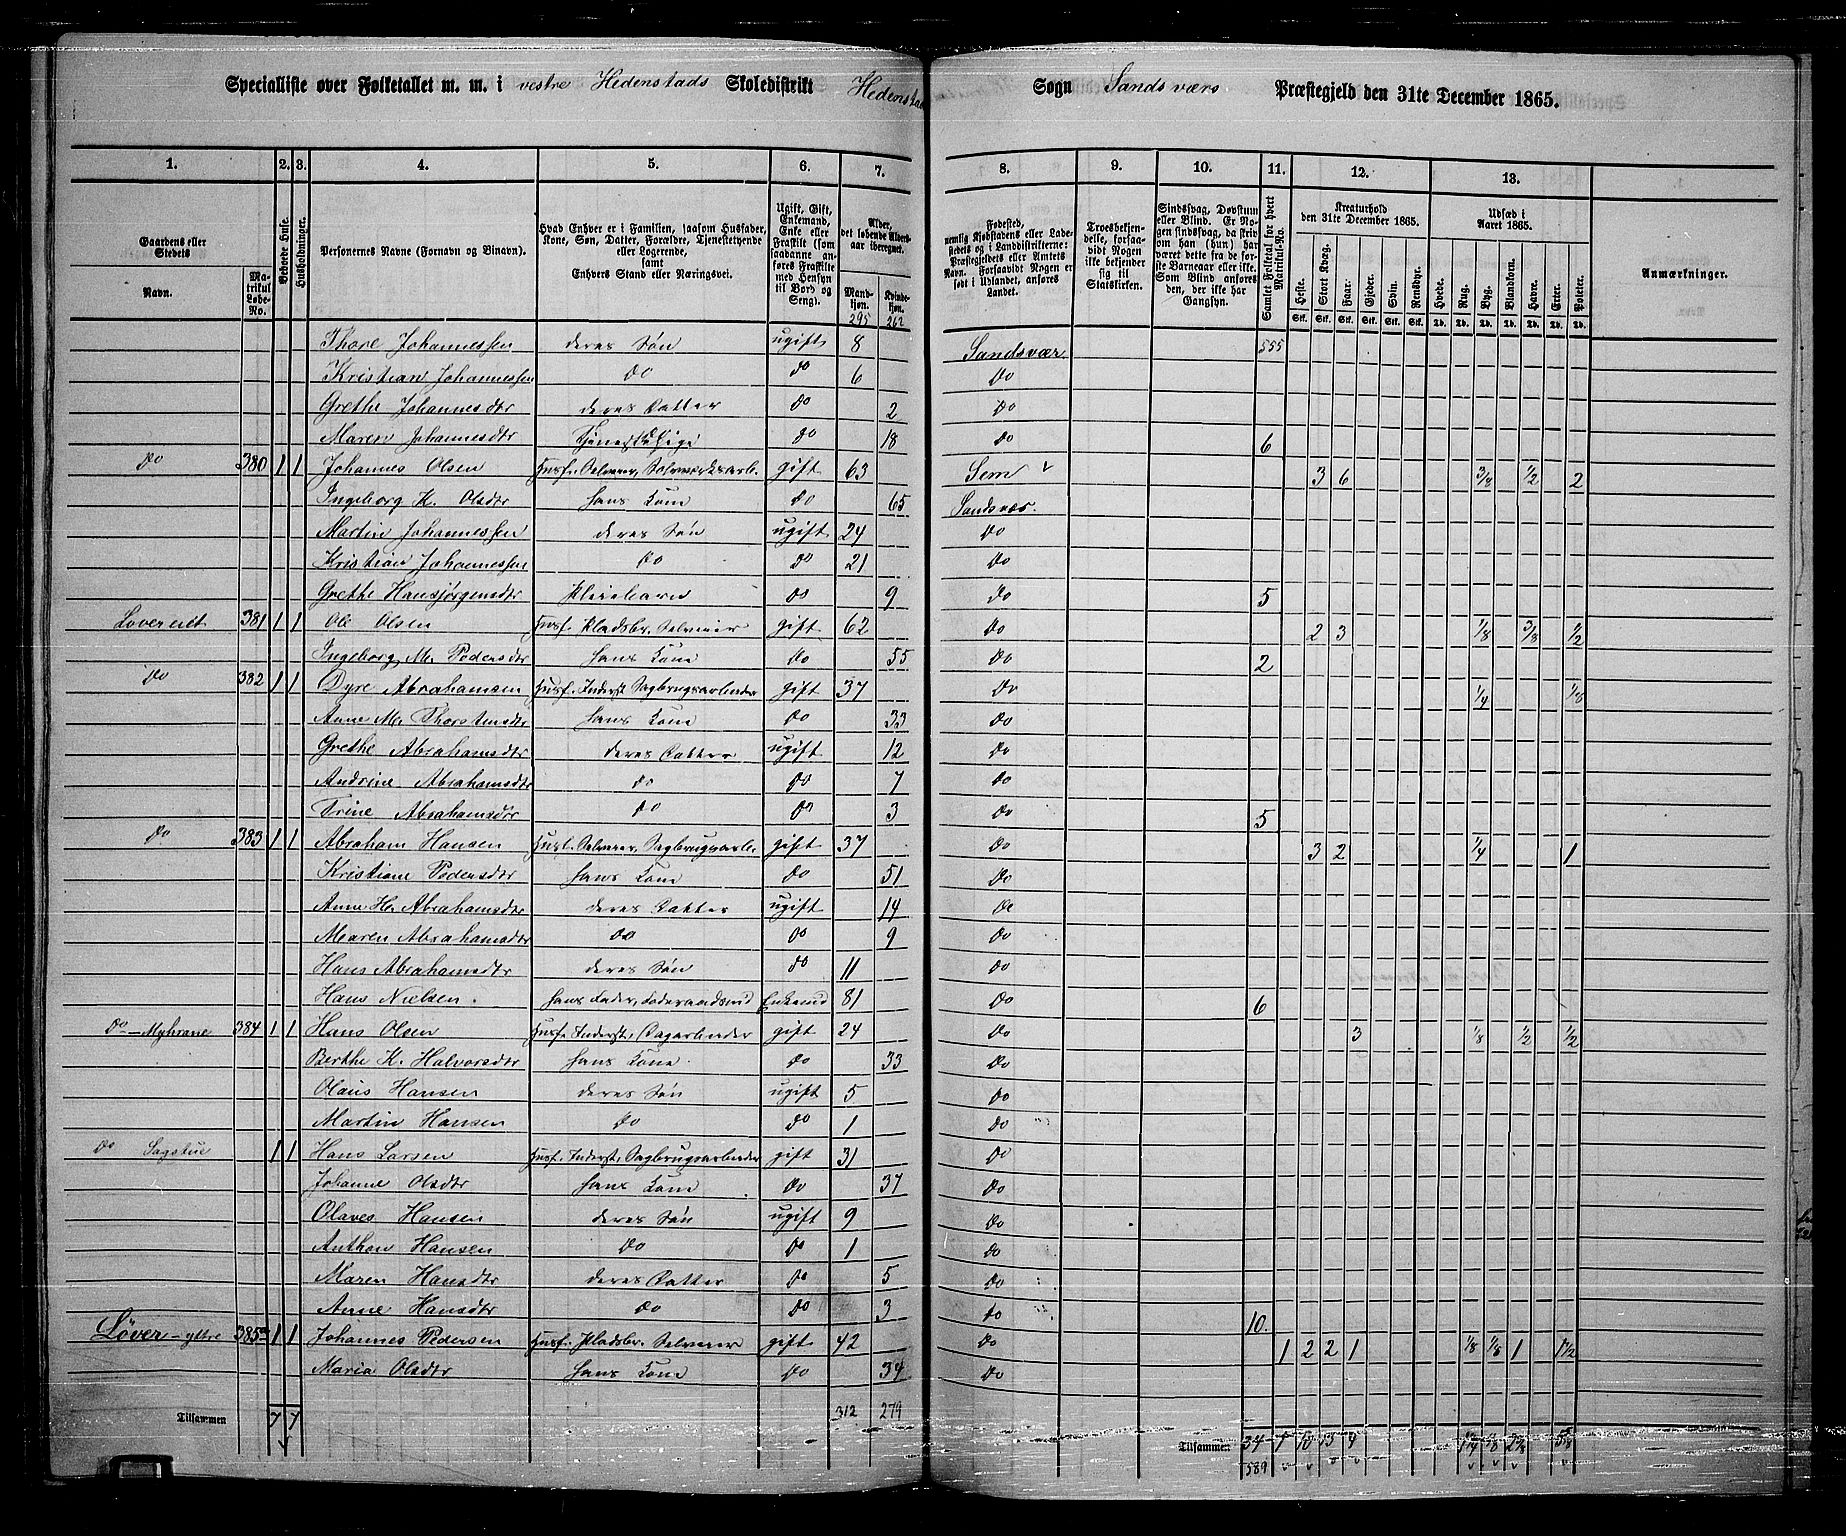 Specialliste over Folketallet m. m. i vestre Hedenstads Skoledistrikt Hedenstad Sogn Sandsværs Præstegjeld den 31te December 1865.
1. 2. 3. 4. 5. 6. 7. 8. 9. 10. 11. 12. 13.
Gaardens eller Stedets
Navn.
Matrikul Løbe-No.
Beboede Huse.
Husholdninger.
Personernes Navne (Fornavn og Binavn).
Hvad Enhver er i Familien, saasom Husfader, Kone, Søn, Datter, Forældre, Tjenestetyende eller Logerende, samt Enhvers Stand eller Næringsvei.
Ugift, Gift, Enkemand, Enke eller Fraskilt (som saadanne anføres Fraskilte med Hensyn til Bord og Seng).
Alder, det løbende Alders-aar iberegnet.
Mandkjøn. Kvindekjøn.
295 262
Fødested, nemlig Kjøbstadens eller Ladestedets og i Landdistrikterne: Præstegjeldets eller Amtets Navn. Forsaavidt Nogen er født i Udlandet, anføres Landet.
Troesbekjendelse, forsaavidt Nogen ikke bekjender sig til Statskirken.
Sindssvag, Døvstum eller Blind. Er Nogen sindssvag, da skriv om han (hun) har været dette fra de første Barneaar eller ikke. Som Blind anføres den, der ikke har Gangsyn.
Samlet Folketal for hvert Matrikul-No.
Kreaturhold den 31te December 1865.
Heste. Stort Kvæg. Faar. Gjeder. Svin. Rensdyr.
Udsæd i Aaret 1865.
Hvede. Rug. Byg. Blandkorn. Havre. Erter. Poteter.
Anmærkninger.
Thore Johannessen deres Søn ugift 8 Sandsvær 555
Kristian Johannessen Do do 6 Do
Grethe Johannesdtr deres Datter Do 2 Do
Maren Johannesdtr Do 18 Do 6
Do 380 1 1 Johannes Olsen Husf. Selveier, Sølvværksarb. gift 63 Sem 3 6 3/4 1/2 2
Ingeborg K. Olsdtr hans Kone Do 65 Sandsvær.
Martin Johannessen deres Søn ugift 24 Do
Kristian Johannessen Do Do 21 Do
Grethe Hansjørgensdtr Pleiebarn Do 9 Do 5
381 1 1 Ole Olsen Husf. Pladsbr. Selveier gift 62 Do 2 3 1/8 3/8 1/2
Ingeborg M. Pedersdtr hans Kone Do 55 Do 2
Do 382 1 1 Dyre Abrahamsen Husf. Inderst Sagbrugsarbeider gift 37 Do 1/4 1/8
Anne M. Thorstensdtr hans Kone Do 33 Do
Grethe Abrahamsdtr deres Datter ugift 12 Do
Andrine Abrahamsdtr do Do 7 Do
Trine Abrahamsdtr Do Do 3 Do 5
Do 383 1 1 Abraham Hansen Husf. Selveier, Sagbrugsarb. gift 37 Do 3 2 1/4 1
Kristiane Pedersdtr hans Kone Do 51 Do
Anne H. Abrahamsdtr deres Datter ugift 14 Do
Maren Abrahamsdtr Do Do 9 Do
Hans Abrahamsdtr deres Søn do 11 Do
Hans Nielsen. hans Fader, Føderaadsmd Enkemd 81 Do 6
Do - Myhrane 384 1 1 Hans Olsen Husf. Inderst, Dagarbeider gift 24 Do 3 1/8 1/2 1/2
Berthe K. Halvorsdtr hans Kone Do 33 Do
Olaus Hansen deres Søn ugift 5 Do
Martin Hansen Do do 1 Do
Do Sagstue 1 1 Hans Larsen Husf. Inderst, Sagbrugsarbeider gift 31 Do
Johanne Olsdtr hans Kone Do 37 Do
Olaves Hansen deres Søn ugift 9 Do
Anthon Hansen Do Do 1 Do
Maren Hansdtr deres Datter Do 5 Do
Anne Hansdtr Do Do 3 Do 10.
Løver - yttre 385 1 1 Johannes Pedersen Husf. Pladsbr. Selveier gift 42 Do 1 2 2 1 1/8 1/8 1 1 1/2
Maria Olsdtr hans Kone Do 34 Do
Tilsammen 7 7 312 279 Tilsammen 34 1 10 13 4
589